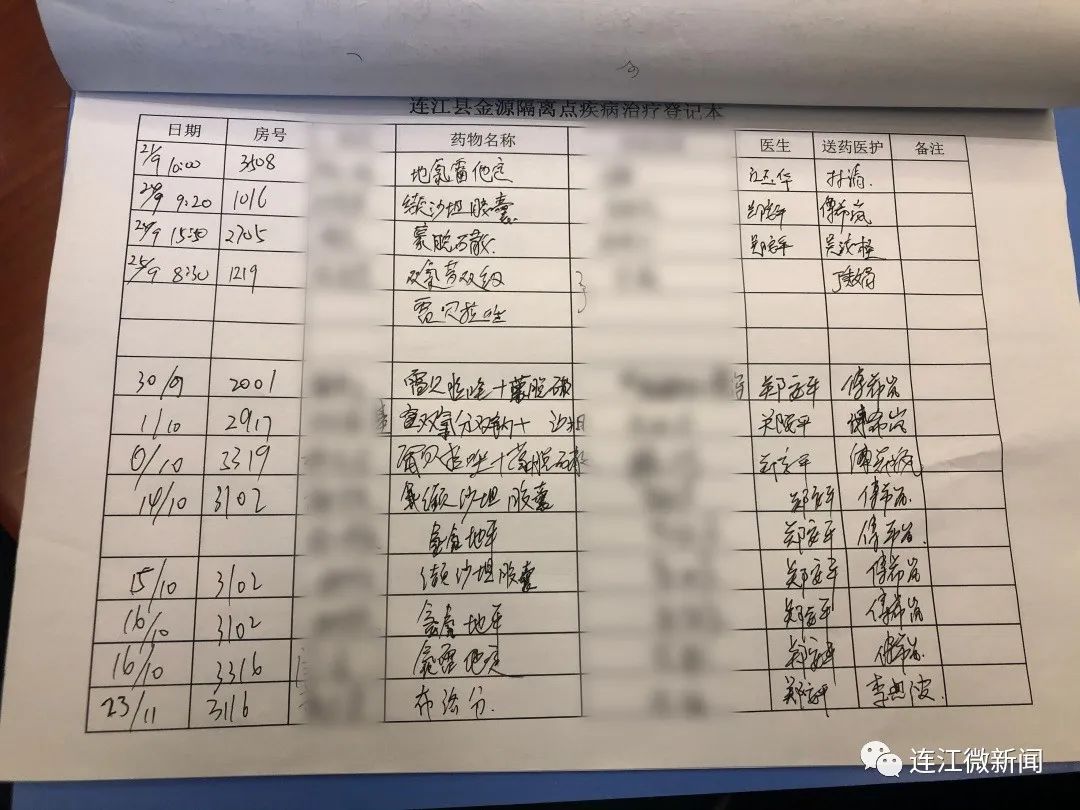 连江县金源隔离点疾病治疗登记本
日期 房号 药物名称 医生 送药医护 备注
21/9 10:00 3508 地氯雷他定
24/9 9:20 1016 缬沙坦胶囊 郑安平 傅希岚
24/9 15:50 2705 蒙脱石散 郑安平
25/9 8:30 1219
雷贝拉唑
30/9 2001 雷贝拉唑+蒙脱石散 郑安平 傅希岚
1/10 2917 郑安平 傅希岚
0/10 3319 雷贝拉唑+蒙脱石散 郑安平 傅希岚
14/10 3102 缬沙坦胶囊 郑安平 傅希岚
地平 郑安平 傅希岚
15/10 3102 缬沙坦胶囊 郑安平 傅希岚
16/10 3102 地平 郑安平 傅希岚
16/10 3316 郑安平 傅希岚
23/11 3116 布洛芬 郑安平
连江微新闻